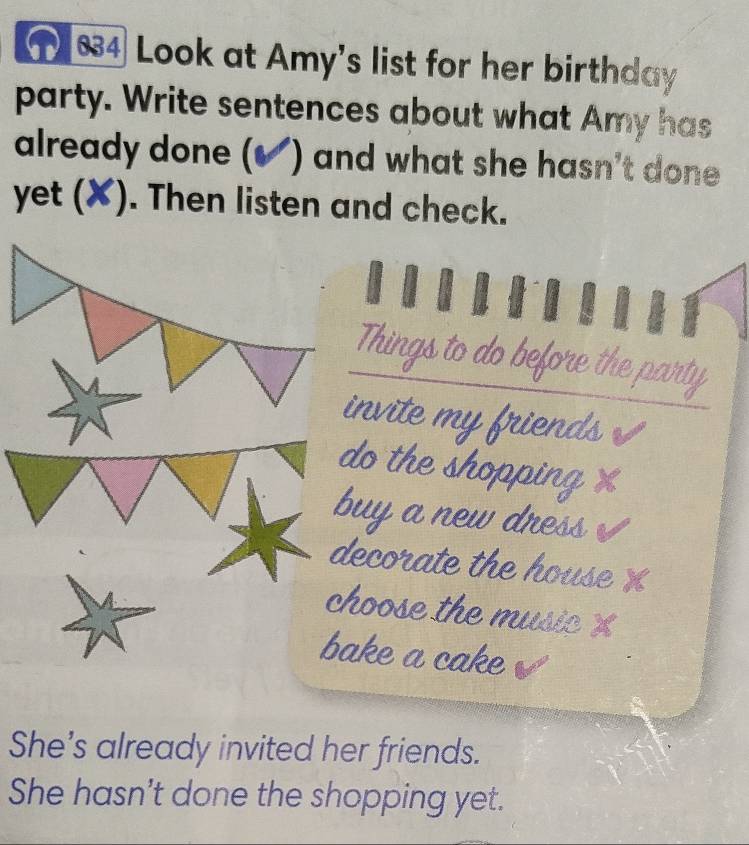 034 Look at Amy's list for her birthday
party. Write sentences about what Amy has
already done (✔) and what she hasn't done
yet (✘). Then listen and check.
Things to do before the party
invite my friends ✔
do the shopping ✘
buy a new dress ✔
decorate the house ✘
choose the music ✘
bake a cake ✔
She's already invited her friends.
She hasn't done the shopping yet.